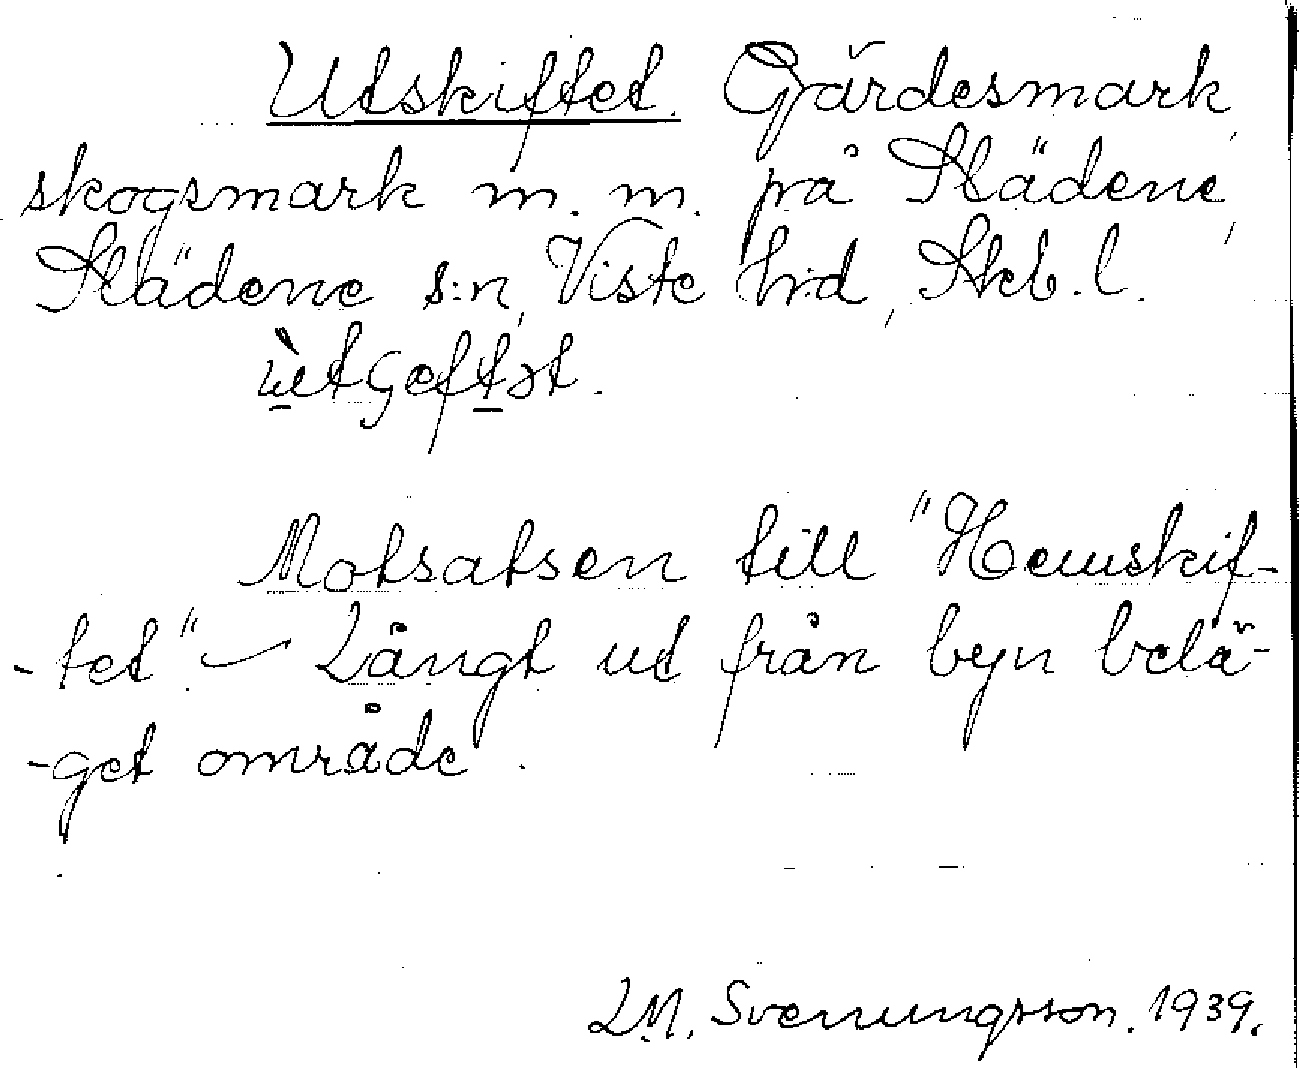 Utskiftet. Gärdesmark,
skogsmark m. m. på Slädene,
Slädene s:n, Viste hrd, Skb. l.
ùtʃeftət.
Motsatsen till "Hemskif-
-tet" – Långt ut från byn belä-
-get område.
L M. Svenungsson. 1939.